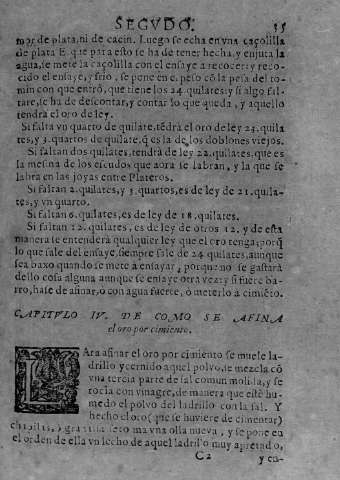 SEGVDO. 35
mor de plata, ni de cacin. Luego se echa en vna caçolilla
de plata E. que para esto se ha de tener hecha, y enjuta la
agua, se mete la caçolilla con el ensaye a recozer: y reco-
cido el ensaye, y frio, se pone en e. peso cõ la pesa del to-
min con que entrò, que tiene los 24. quilates: y si algo fal-
tare, se ha de descontar, y contar lo que queda, y aquello
tendrá el oro de ley.
Si falta vn quarto de quilate, tẽdrá el oro de ley 23. quila
tes, y 3. quartos de quilate, q̃ es la de los doblones viejos.
Si faltan dos quilates, tendrà de ley 22. quilates, que es
la mesma de los escudos que aora se labran, y la que se
labra en las joyas entre Plateros.
Si faltan 2. quilates, y 3. quartos, es de ley de 21. quila-
tes, y vn quarto.
Si faltan 6. quilates, es de ley de 18. quilates.
Si faltan 12. quilates, es de ley de otros 12. y de esta
manera se entenderá qualquier ley que el oro tenga, porq̃
lo que sale del ensaye, siempre sale de 24 quilates, aunque
sea baxo quando se mete a ensayar, porque no se gastará
dello cosa alguna aunque se ensaye otra vez: y si fuere ba-
rro, hase de afinar, ò con agua fuerte, ò meterlo a cimiẽto.
CAPITVLO IV. DE COMO SE AFINA
el oro por cimiento.
PAra afinar el oro por cimiẽto se muele la-
drillo y cernido aquel polvo, se mezcla cõ
vna tercia parte de sal comun molida, y se
rocia con vinagre, de manera que estè hu-
medo el polvo del ladrillo con la sal. Y
hecho el oro (que se huviere de cimentar)
vna olla nueva, y se pone en
el orden de ella vn lecho de aquel ladrillo muy apretado,
C2 y en-